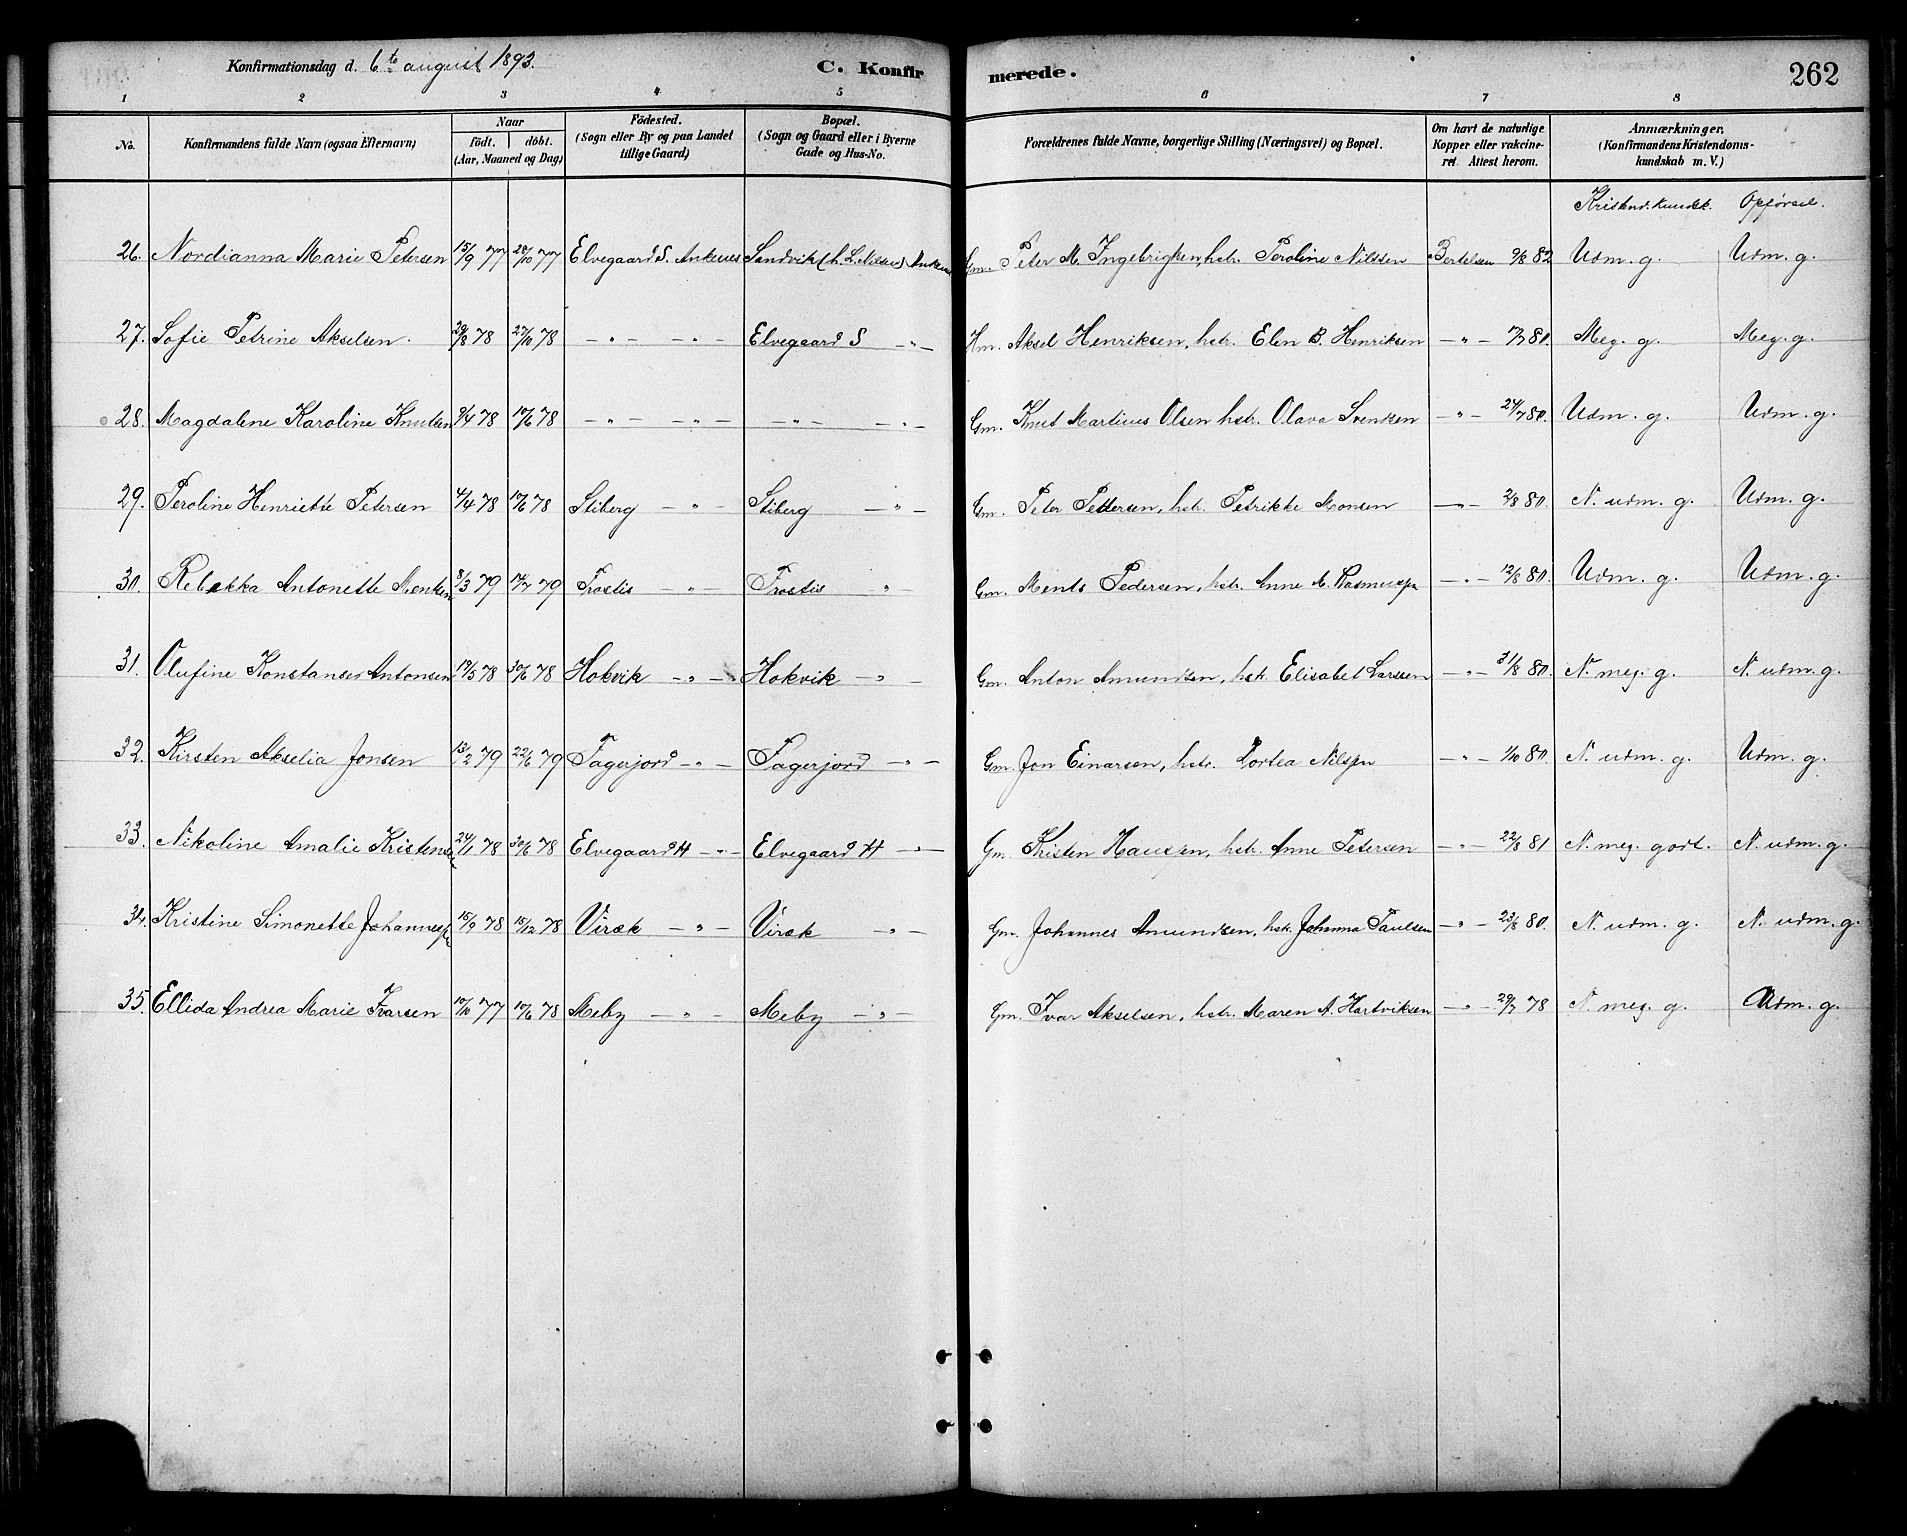 Konfirmationsdag d. 6te august 1893. C. Konfirmerede. 262
1 2 3 4 5 6 7 8
No. Konfirmandens fulde Navn (ogsaa Efternavn) Naar födt. döbt. (Aar, Maaned og Dag) Födested. (Sogn eller By og paa Landet tillige Gaard) Bopæl. (Sogn og Gaard eller i Byerne Gade og Hus-No. Forældrenes fulde Navne, borgerlige Stilling (Næringsvei) og Bopæl. Om havt de naturlige Kopper eller vakcineret Attest herom. Anmærkninger. (Konfirmandens Kristendomskundskab m. V.)
Kristend. kundsk. Opførsel.
26. Nordianna Marie Petersen 15/9 77 28/10 77 Elvegaard S. Ankenes Sandvik (h. L. Nilsen) Ankenes Gm. Peter M. Ingebrigtsen, hstr. Peroline Nilssen Bertelsen 9/8 82 Udm. g. Udm. g.
27. Sofie Petrine Akselsen. 29/8 78 27/10 78 — " — — " — Elvegaard S — " — Hm. Aksel Henriksen, hstr. Elen B. Henriksen — " — 7/7 80. Meg. g. Meg. g.
28. Magdalene Karoline Knutsen 9/4 78 10/6 78 — " — — " — — " — — " — Gm. Knut Martinus Olsen hstr. Olava Svendsen — " — 24/7 80. Udm. g. Udm. g.
29. Peroline Henriette Petersen 4/4 78 10/6 78 Stiberg — " — Stiberg — " — Gm. Peter Pettersen, hstr. Petrikke Monsen — " — 2/8 80. N. udm. g. Udm. g.
30. Rebekka Antonette Mentsen 8/3 79 14/7 79 Trostis — " — Trostis " Gm. Ments Pedersen, hstr. Anne M. Rasmussen — " — 12/8 80. Udm. g. Udm. g.
31. Olufine Konstanse Antonsen. 19/3 78 30/6 78 Hokvik — " — Hokvik — " — Gm. Anton Amundsen, hstr. Elisabet Larssen — " — 31/8 80. N. meg. g. N. udm. g.
32. Kirsten Akselia Jonsen 13/2 79 22/6 79 Fagerjord — " — Fagerjord — " — Gm. Jon Einarsen, hstr. Dortea Nilssen — " — 1/10 80. N. udm. g. Udm. g.
33. Nikoline Amalie Kristensen 24/1 78 30/6 78 Elvegaard H — " — Elvegaard H — " — Gm. Kristen Hansen, hstr. Anne Petersen — " — 22/8 81 N. meg. godt. N. udm. g.
34. Kristine Simonette Johannessen 15/9 78 15/12 78 Viræk — " — Viræk — " — Gm. Johannes Amundsen, hstr. Johanna Paulsen — " — 23/8 80. N. udm. g. N. udm. g.
35. Ellida Andrea Marie Ivarsen 10/10 77 10/6 78 Meby — " — Meby — " — Gm. Ivar Akselsen, hstr. Maren A. Hartviksen — " — 29/7 78 N. meg. g. Udm. g.